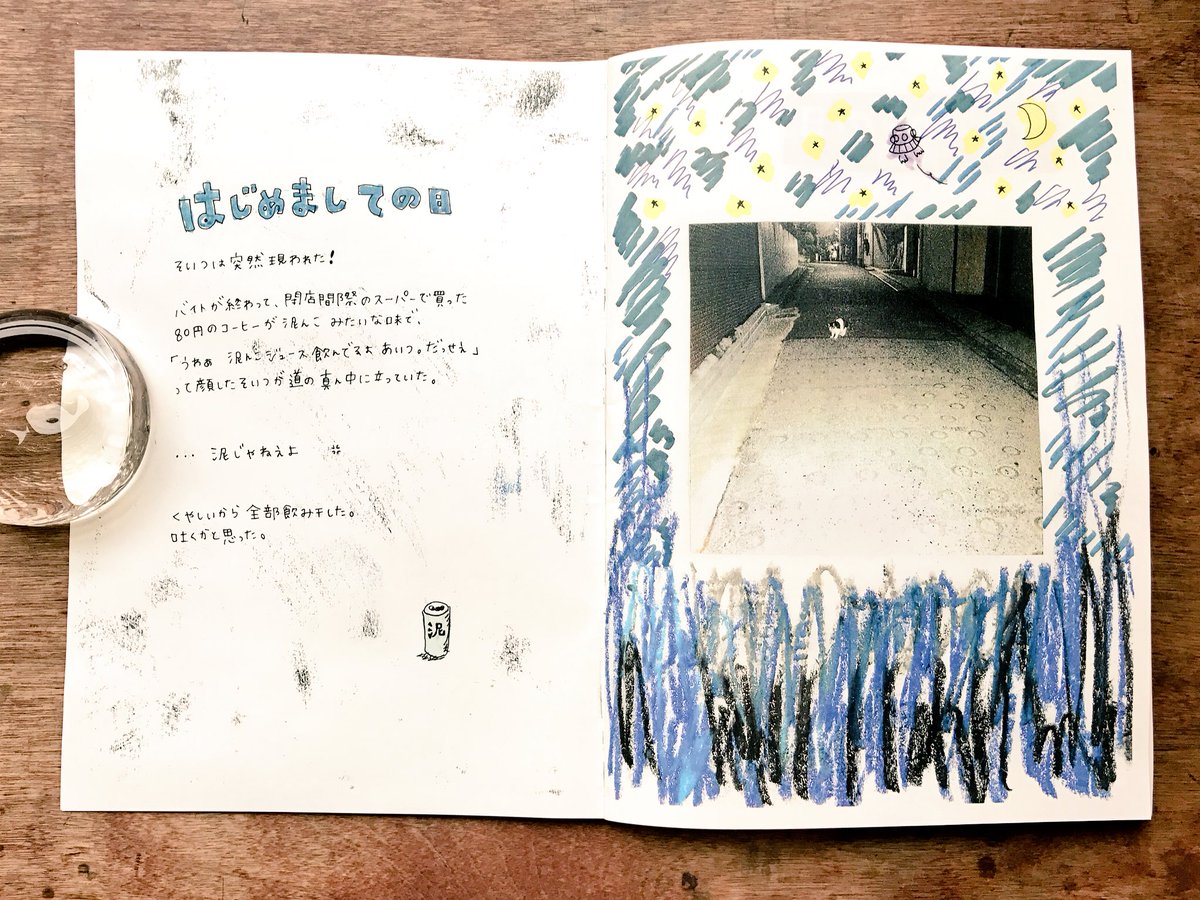 はじめましての日
そいつは突然現われた!
バイトが終わって、閉店間際のスーパーで買った
80円のコーヒーが泥んこみたいな味で、
「うわぁ 泥んこジュース飲んでるよ あいつ。だっせえ」
って顔したそいつが道の真ん中に立っていた。
... 泥じゃねえよ
くやしいから全部飲み干した。
吐くかと思った。
泥